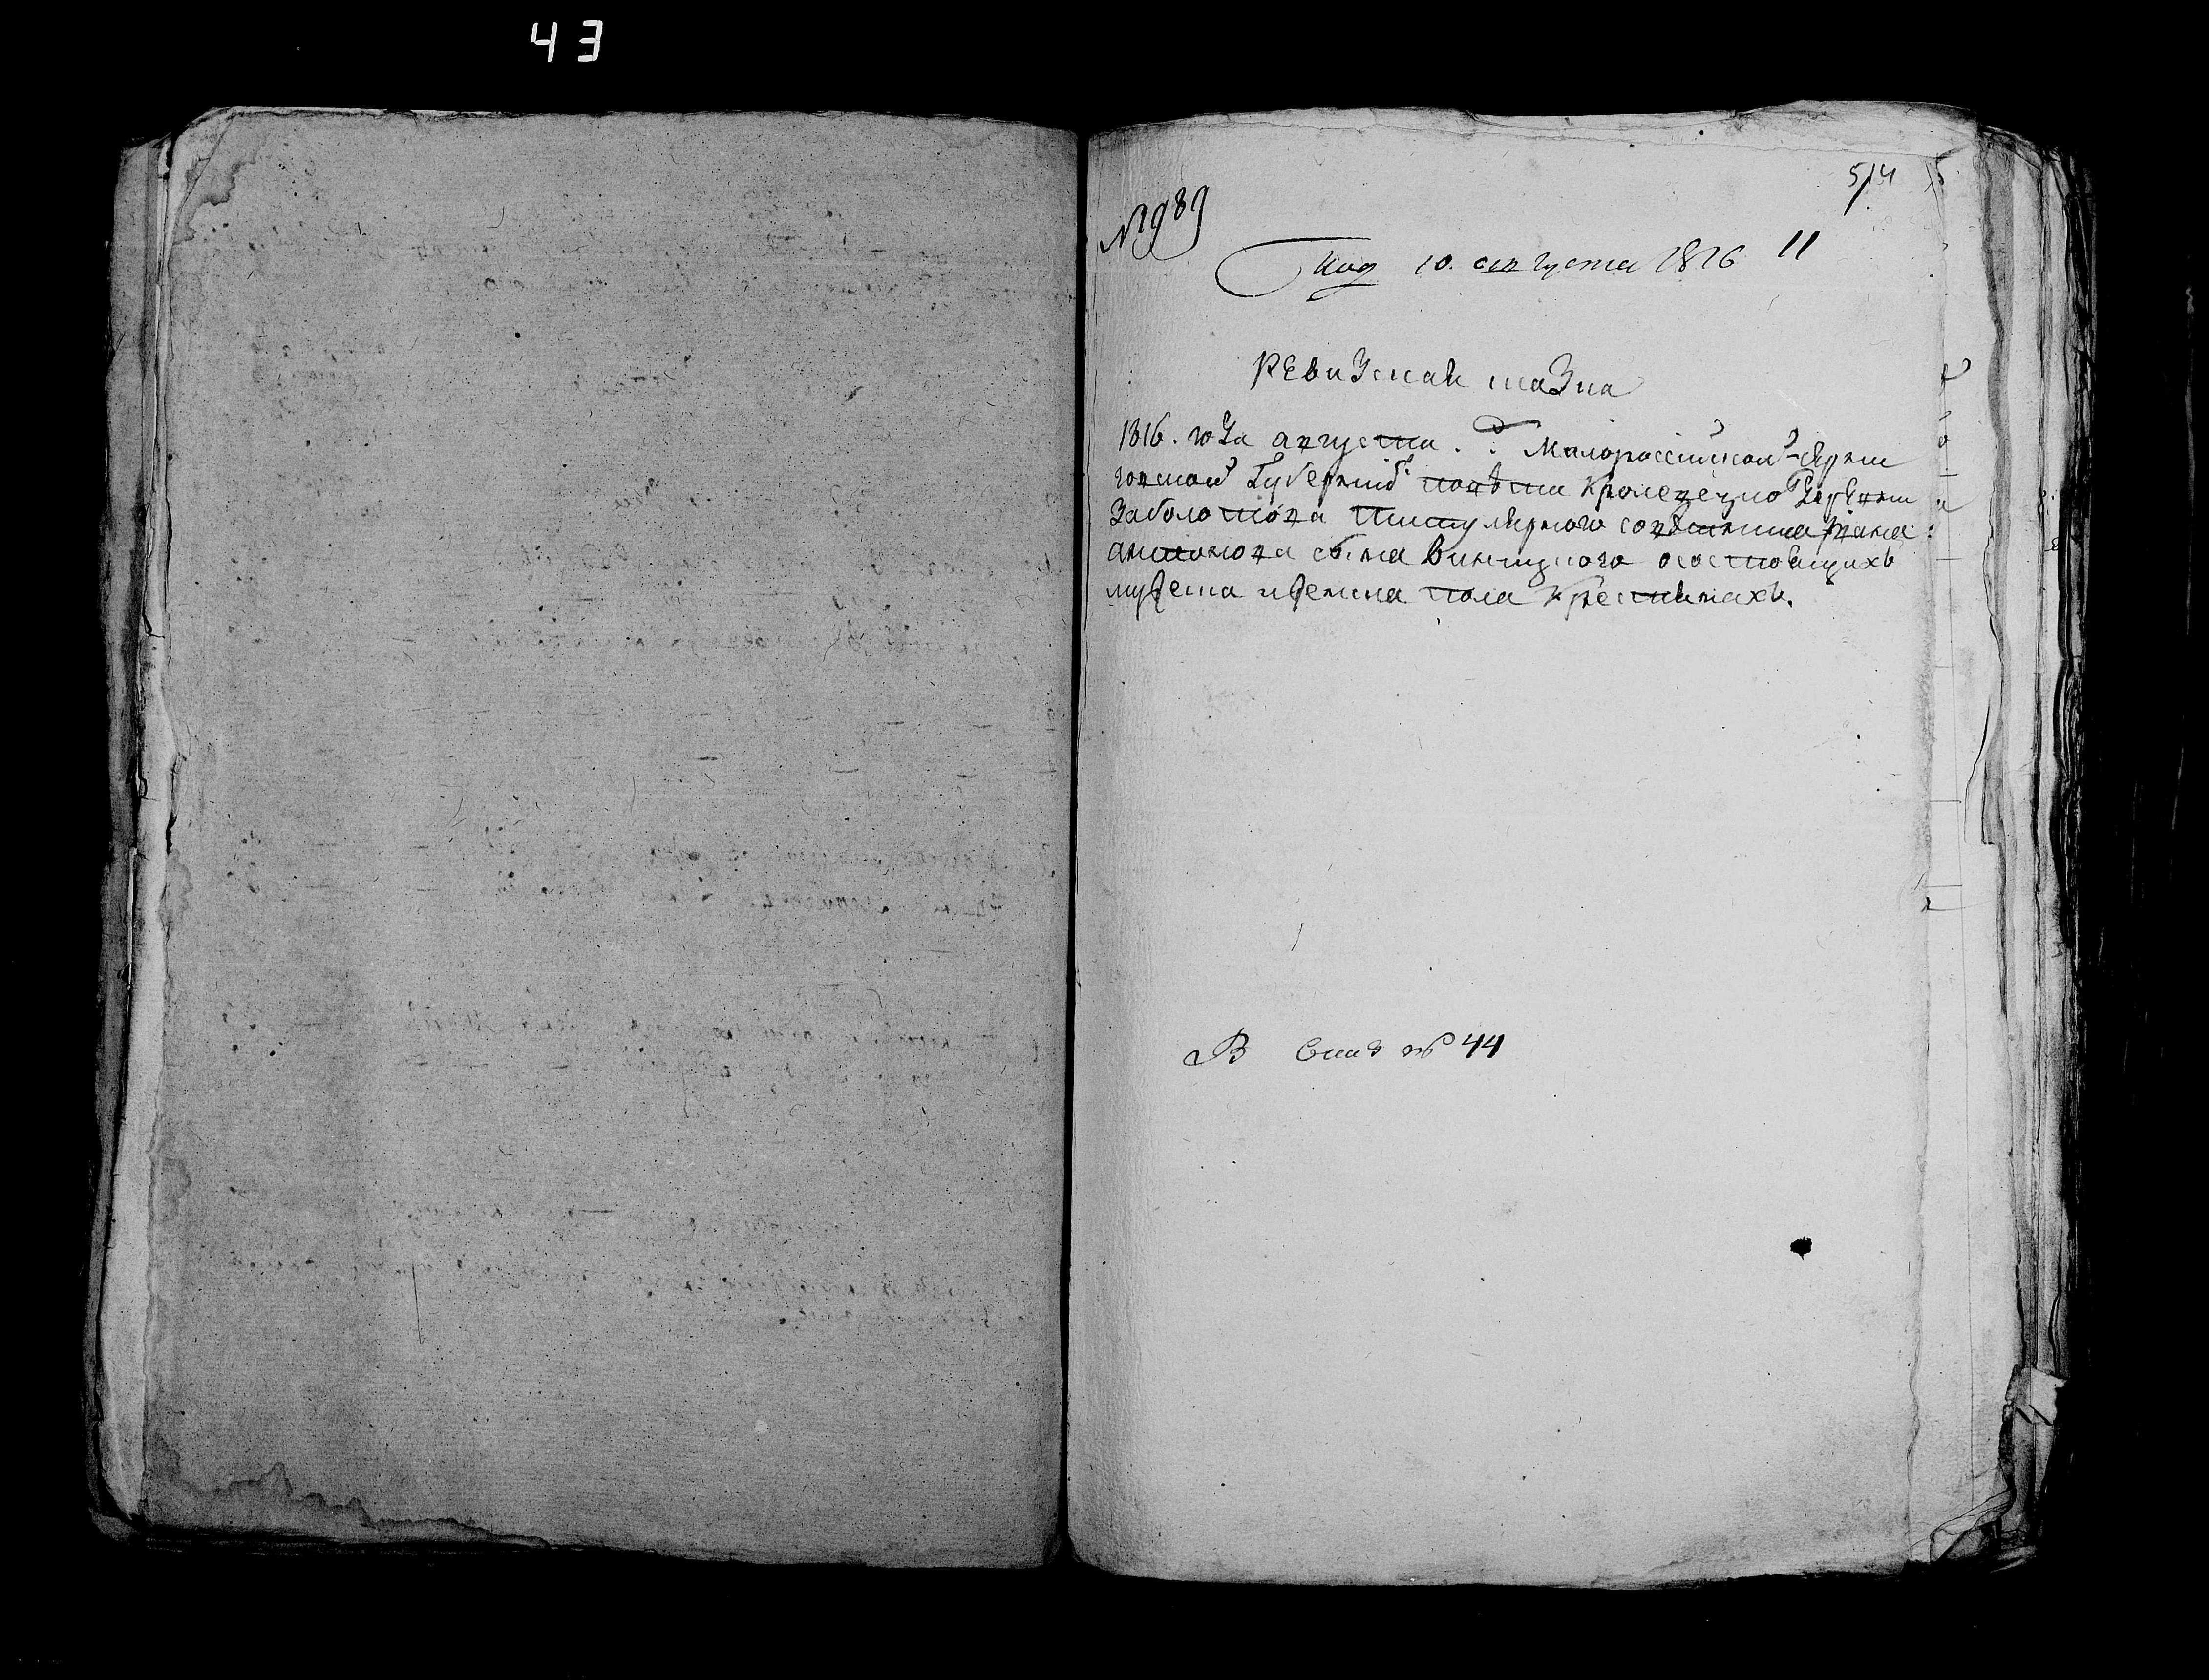 43
514
№ 989
Под 10. августа 1816 11
Ревизская сказка
1816. года августа. Малороссийской Черни
говской Губернии повета Кролевецкого Деревни
Заболотова титулярного советника Ивана
антонова сына о состоящихъ
мужеска и женска пола крестьянахъ.
В № 44